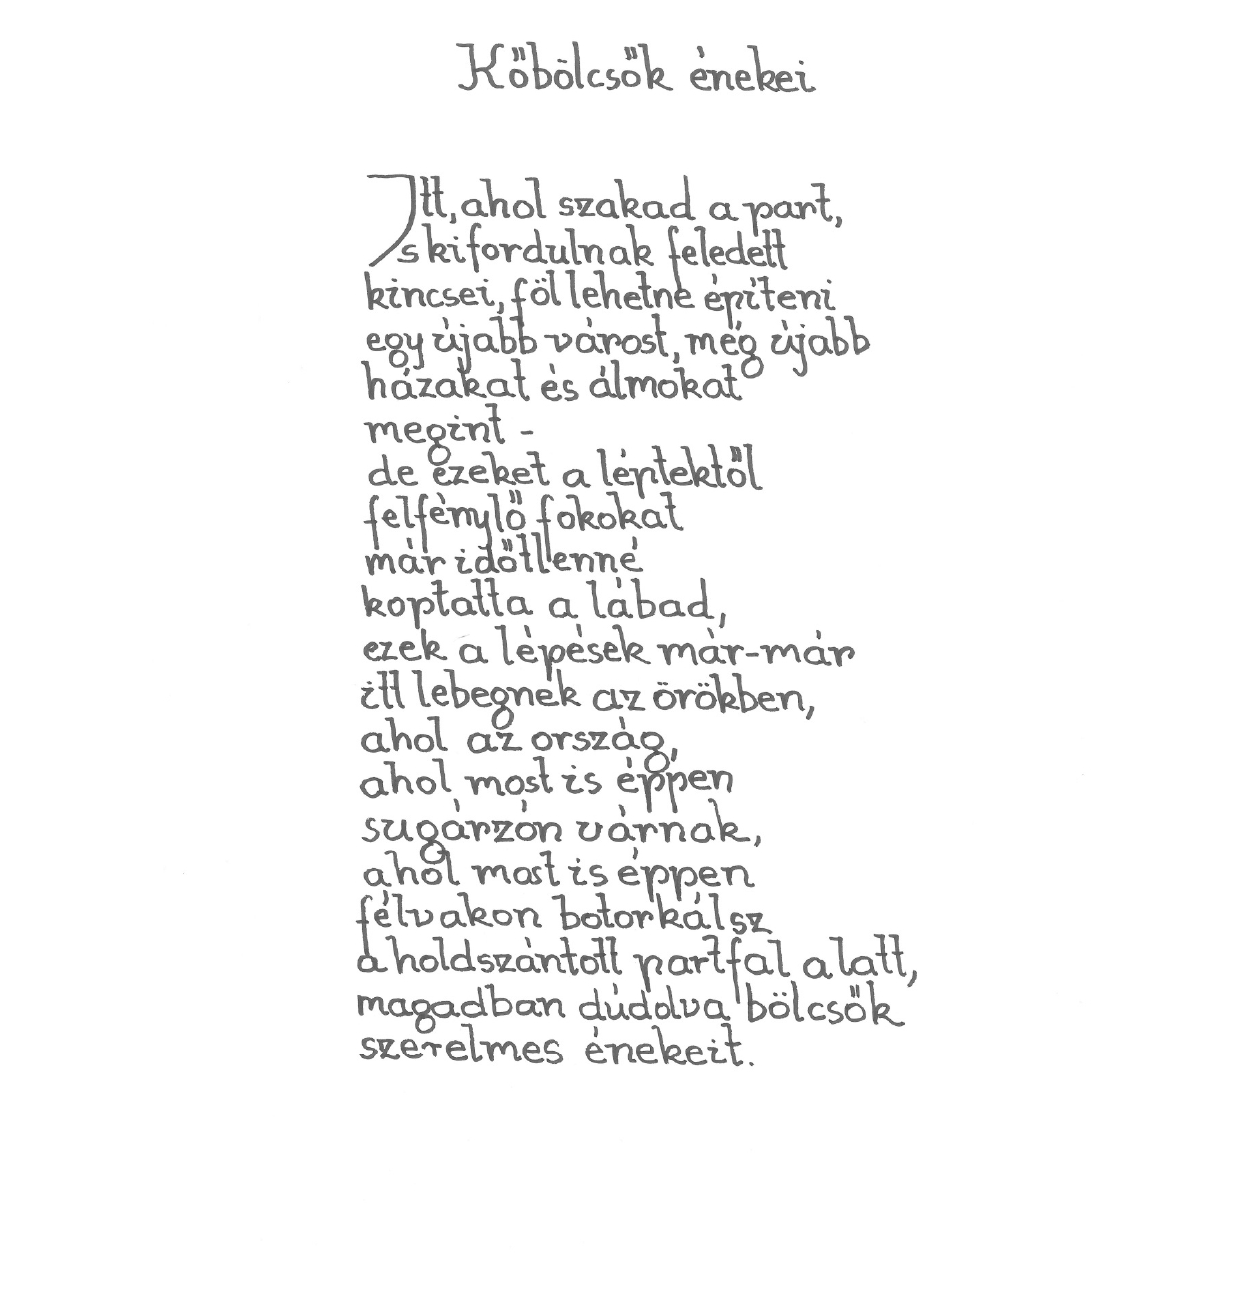 Kőbölcsők énekei
Itt, ahol szakad a part,
s kifordulnak feledett
kincsei, föl lehetne építeni
egy újabb várost, még újabb
házakat és álmokat
megint -
de ezeket a léptektől
felfénylő fokokat
már időtlenné
koptatta a lábad,
ezek a lépések már-már
itt lebegnek az örökben,
ahol az ország,
ahol most is éppen
sugárzón várnak,
ahol most is éppen
félvakon botorkálsz
a holdszántott partfal alatt,
magadban dúdolva bölcsők
szerelmes énekeit.